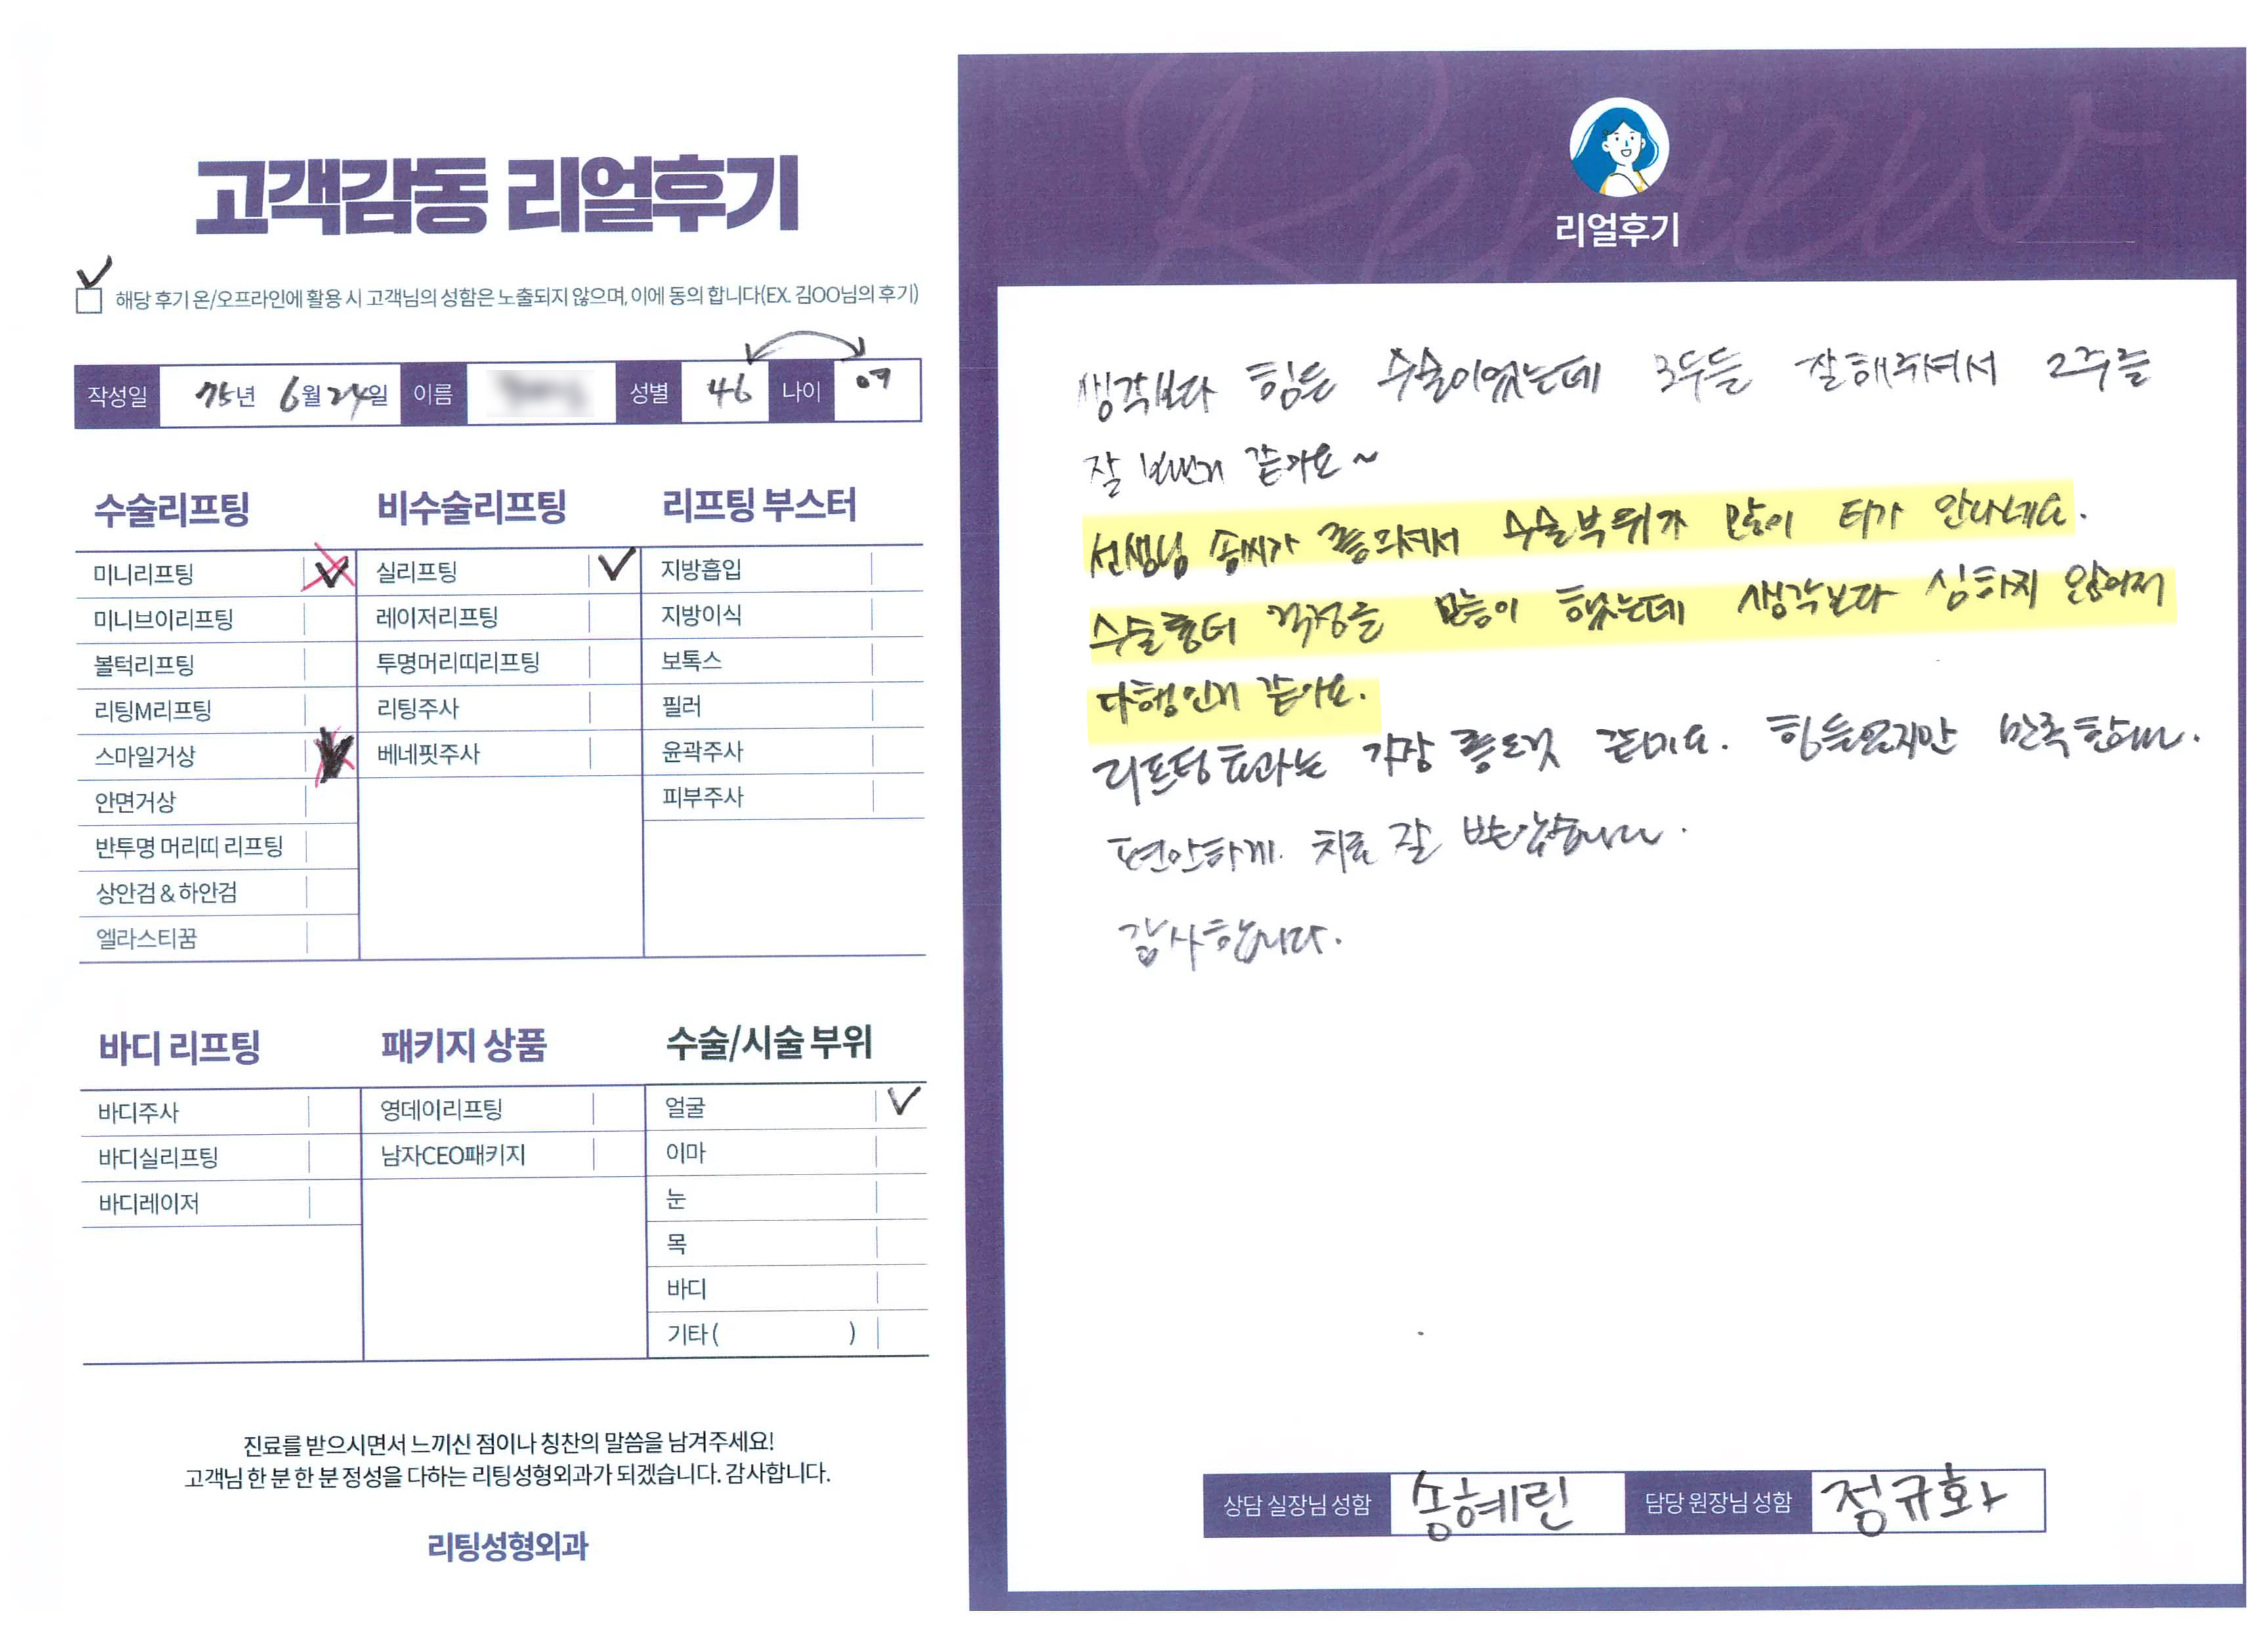 고객감동 리얼후기
해당 후기 온/오프라인에 활용 시 고객님의 성함은 노출되지 않으며, 이에 동의 합니다(EX. 김OO님의 후기)
작성일 75년 6월 24일 이름 성별 46 나이 여
수술리프팅
미니리프팅
미니브이리프팅
볼턱리프팅
리팅M리프팅
스마일거상
안면거상
반투명 머리띠 리프팅
상안검 & 하안검
엘라스티꿈
비수술리프팅
실리프팅
레이저리프팅
투명머리띠리프팅
리팅주사
베네핏주사
리프팅 부스터
지방흡입
지방이식
보톡스
필러
윤곽주사
피부주사
바디 리프팅
바디주사
바디실리프팅
바디레이저
패키지 상품
영데이리프팅
남자CEO패키지
수술/시술 부위
얼굴
이마
눈
목
바디
기타 ( )
진료를 받으시면서 느끼신 점이나 칭찬의 말씀을 남겨주세요!
고객님 한 분 한 분 정성을 다하는 리팅성형외과가 되겠습니다. 감사합니다.
리팅성형외과
Review
리얼후기
생각보다 힘든 수술이었는데 모두들 잘해주셔서 2주를
잘 보낸거 같아요~
선생님 솜씨가 좋으셔서 수술부위가 많이 티가 안나네요.
수술흉터 걱정을 많이 했는데 생각보다 심하지 않아서
다행인거 같아요.
리프팅효과는 가장 좋은것 같아요. 힘들었지만 만족합니다.
편안하게 치료 잘 받았습니다.
감사합니다.
상담 실장님 성함 송혜린 담당 원장님 성함 정규화